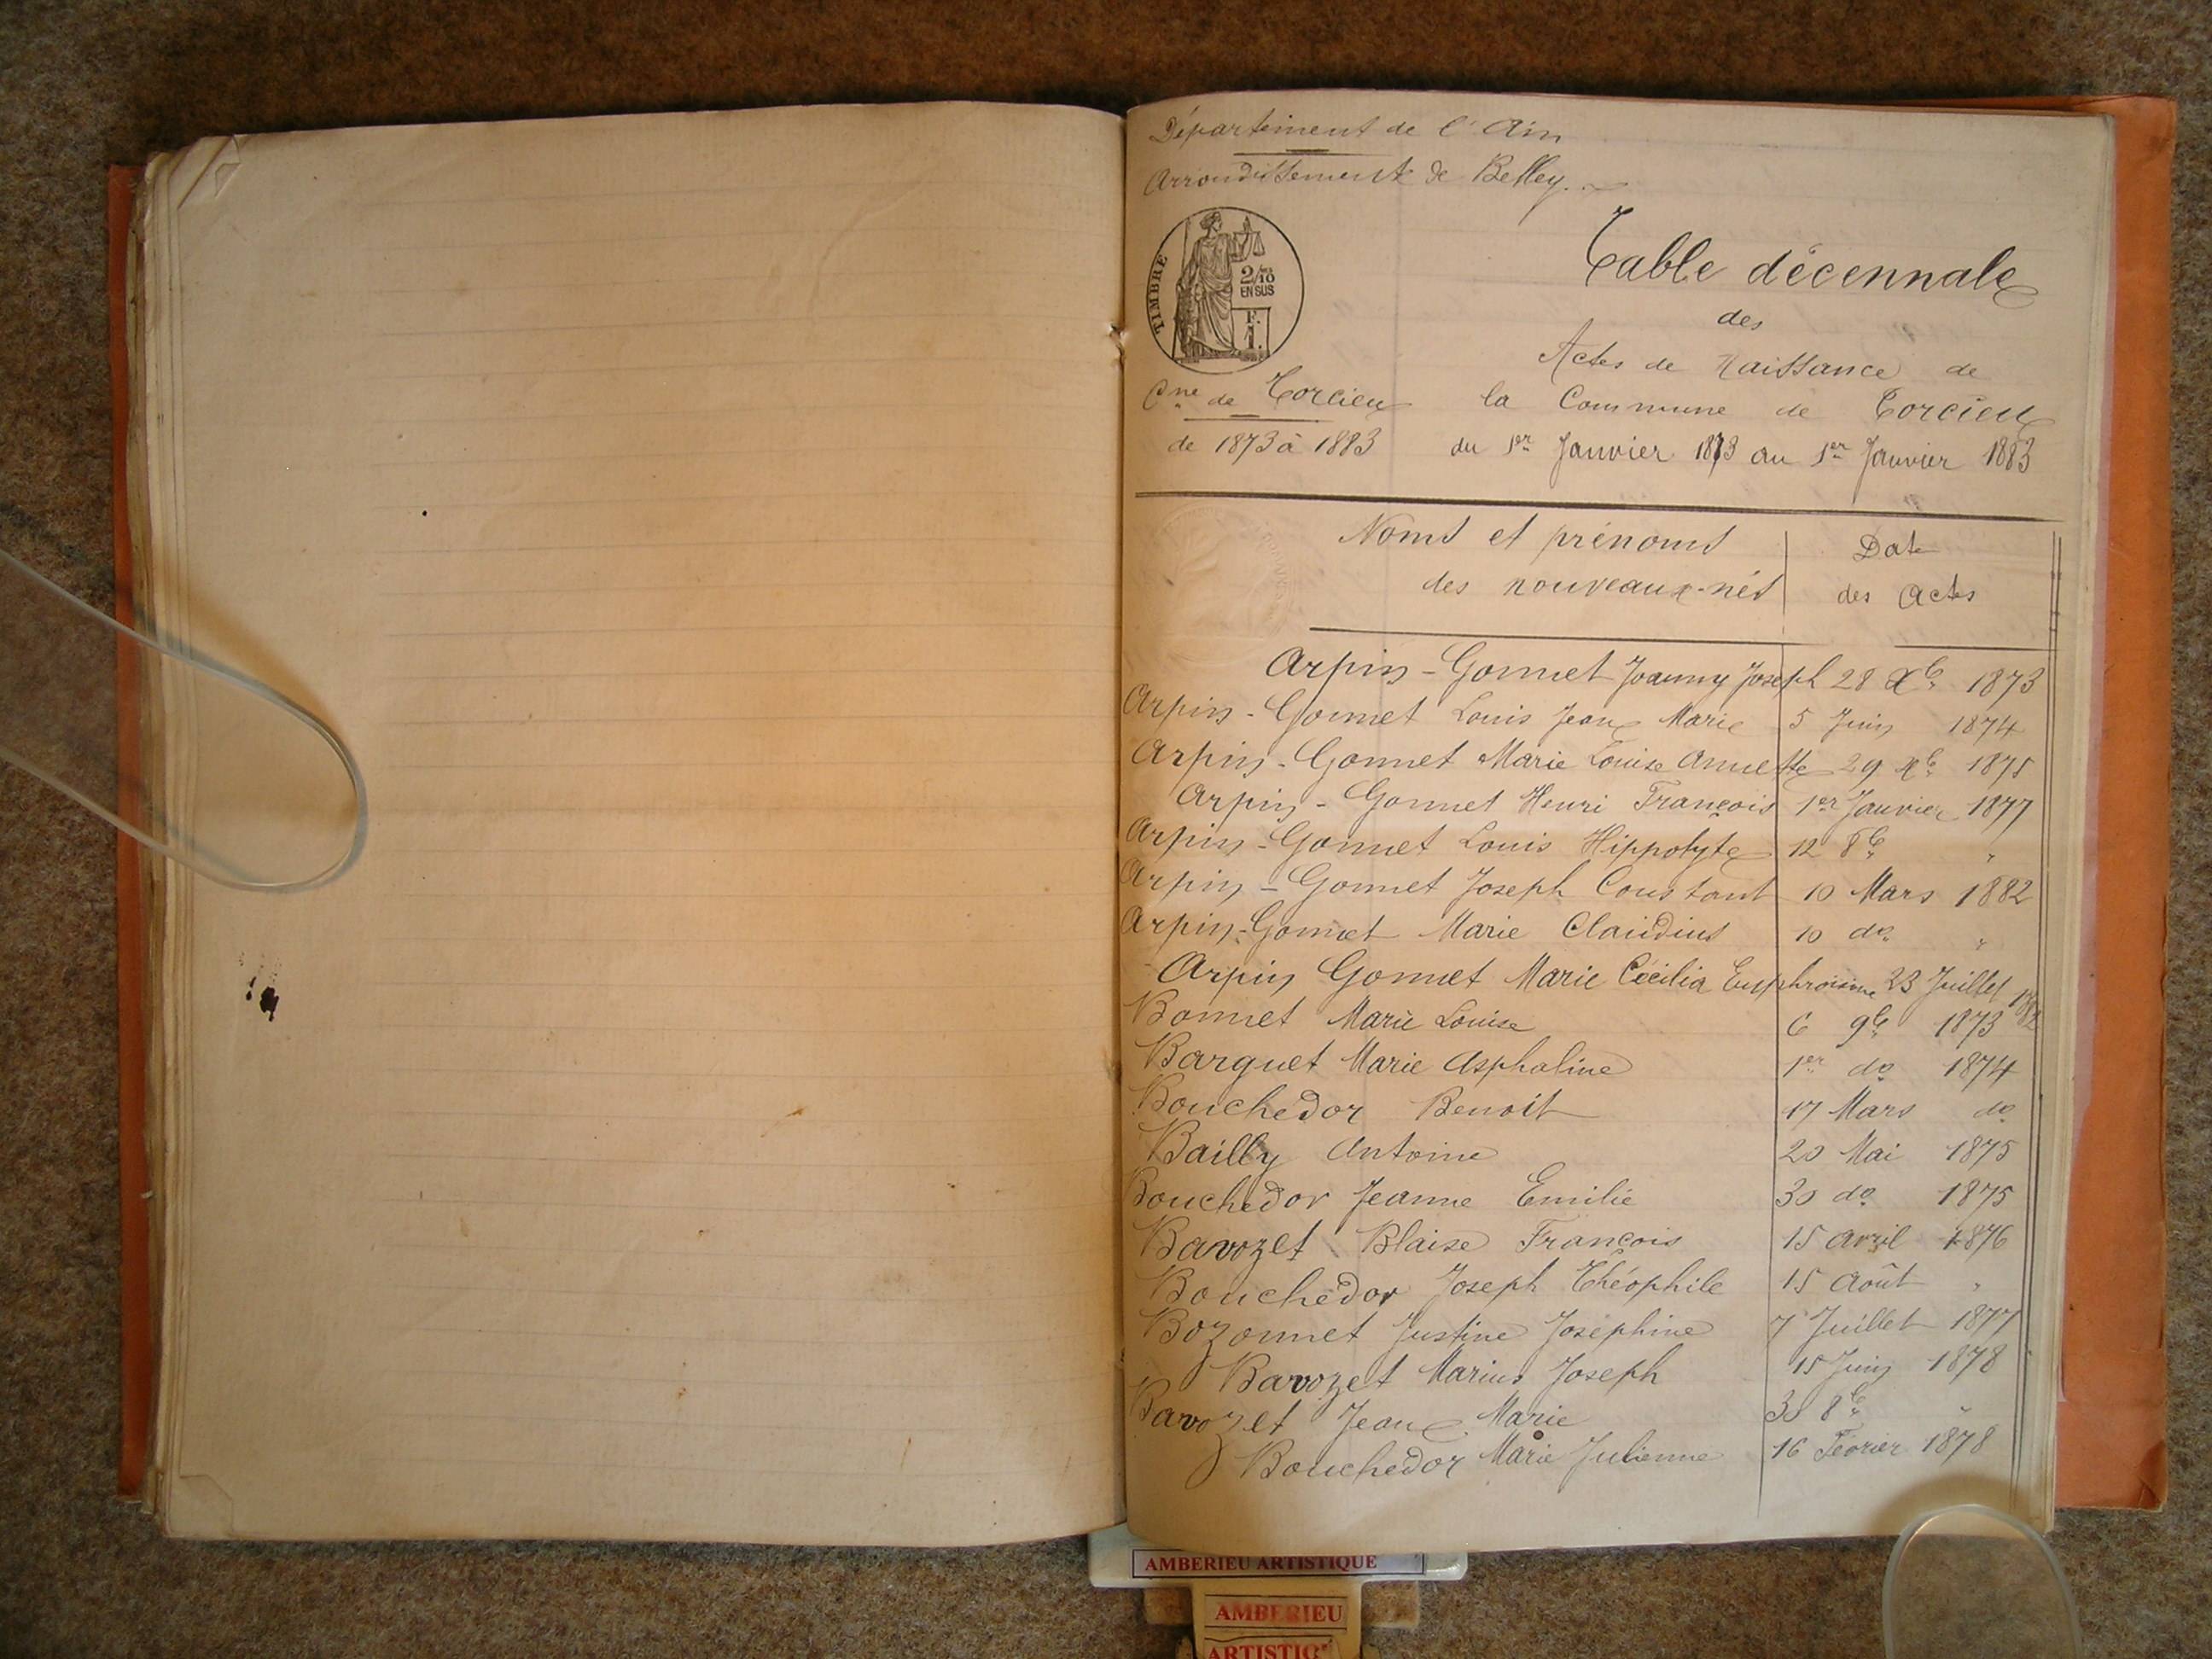 Département de l'Ain
Arrondissement de Belley.
TIMBRE
2/10
EN SUS
F.
1.
Cne de Torcieu
de 1873 à 1883
Table décennale
des
Actes de Naissance de
la Commune de Torcieu
du 1er Janvier 1873 au 1er Janvier 1883
Noms et prénoms
des nouveaux-nés
Date
des Actes
Arpin-Gonnet Joanny Joseph 28 Xbre 1873
Arpin-Gonnet Louis Jean Marie 5 Juin 1874
Arpin-Gonnet Marie Louise Annette 29 Xbre 1875
Arpin-Gonnet Henri François 1er Janvier 1877
Arpin-Gonnet Louis Hippolyte 12 8bre "
Arpin-Gonnet Joseph Constant 10 Mars 1882
Arpin-Gonnet Marie Claudius 10 do "
Arpin Gonnet Marie Cécilia Euphrosine 23 Juillet 1882
Bonnet Marie Louise 6 9bre 1873
Barquet Marie Asphaline 1er do 1874
Bouchedor Benoit 17 Mars do
Bailly Antoine 20 Mai 1875
Bouchedor Jeanne Emilie 30 do 1875
Bavozet Blaise François 15 Avril 1876
Bouchedor Joseph Théophile 15 Août "
Bozonnet Justine Joséphine 7 Juillet 1877
Bavozet Marius Joseph 15 Juin 1878
Bavozet Jean Marie 30 8bre "
Bouchedor Marie Julienne 16 Février 1878
AMBERIEU ARTISTIQUE
AMBERIEU
ARTISTIQ